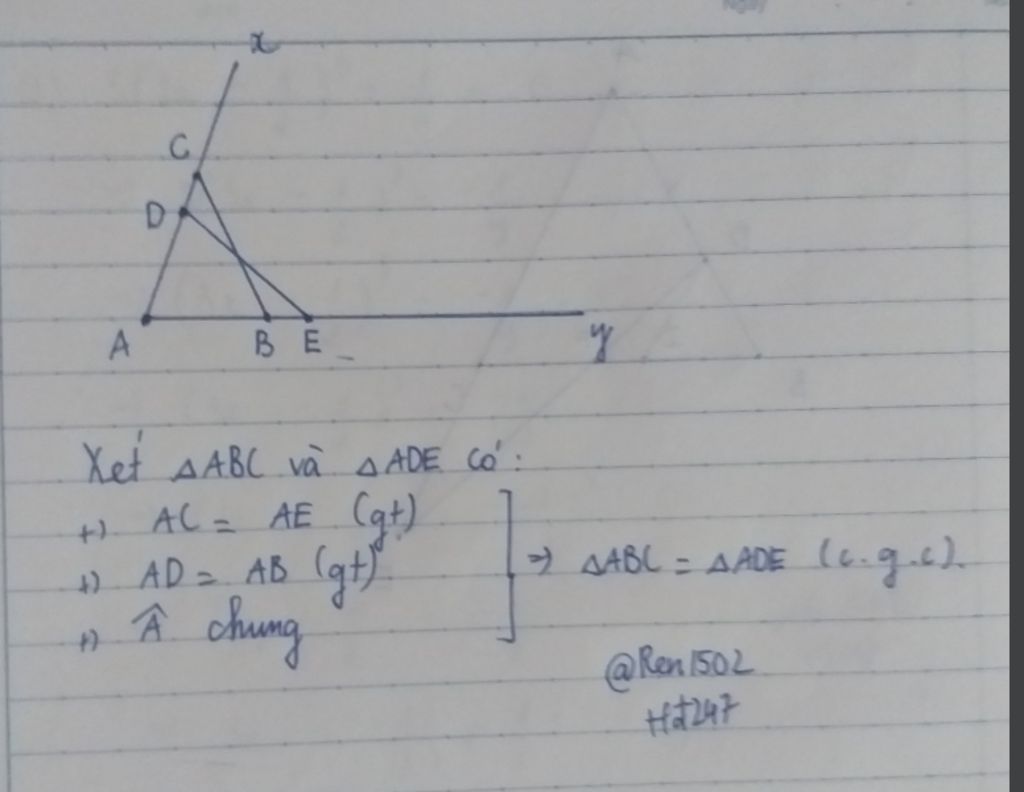 x
C
D
A B E y
Xét △ABC và △ADE có:
+) AC = AE (gt)
+) AD = AB (gt)
+) Â chung
⇒ △ABC = △ADE (c.g.c).
@Ren1502